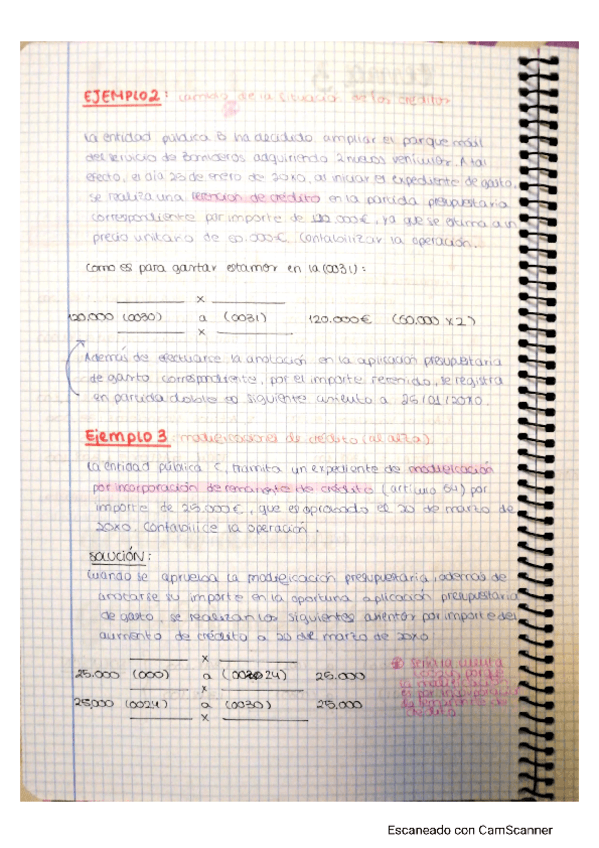 EJEMPLO 2: cambio de la situación de los créditos
La entidad pública B ha decidido ampliar el parque móvil
del servicio de Bomberos adquiriendo 2 nuevos vehículos. A tal
efecto, el día 25 de enero de 20X0, al iniciar el expediente de gasto,
se realiza una retención de crédito en la partida presupuestaria
correspondiente por importe de 120.000€, ya que se estima a un
precio unitario de 60.000€. Contabilizar la operación.
Como es para gastar estamos en la (0031):
x
120.000 (0030) a (0031) 120.000€ (60.000 x 2)
x
Además de efectuarse la anotación en la aplicación presupuestaria
de gasto correspondiente, por el importe retenido, se registra
en partida doble siguiente asiento a 25/01/20X0.
Ejemplo 3: modificaciones de crédito (al alza)
La entidad pública C, tramita un expediente de modificación
por incorporación de remanente de crédito (artículo 54) por
importe de 25.000€, que es aprobado el 20 de marzo de
20X0. Contabilice la operación.
SOLUCIÓN:
Cuando se aprueba la modificación presupuestaria, además de
anotarse su importe en la oportuna aplicación presupuestaria
de gasto, se realizan los siguientes asientos por importe del
aumento de crédito a 20 de marzo de 20X0
x
25.000 (000) a (0024) 25.000
x
25.000 (0024) a (0030) 25.000
x
sería la cuenta
porque
la modificación
es por incorporación
de remanente de
crédito
Escaneado con CamScanner